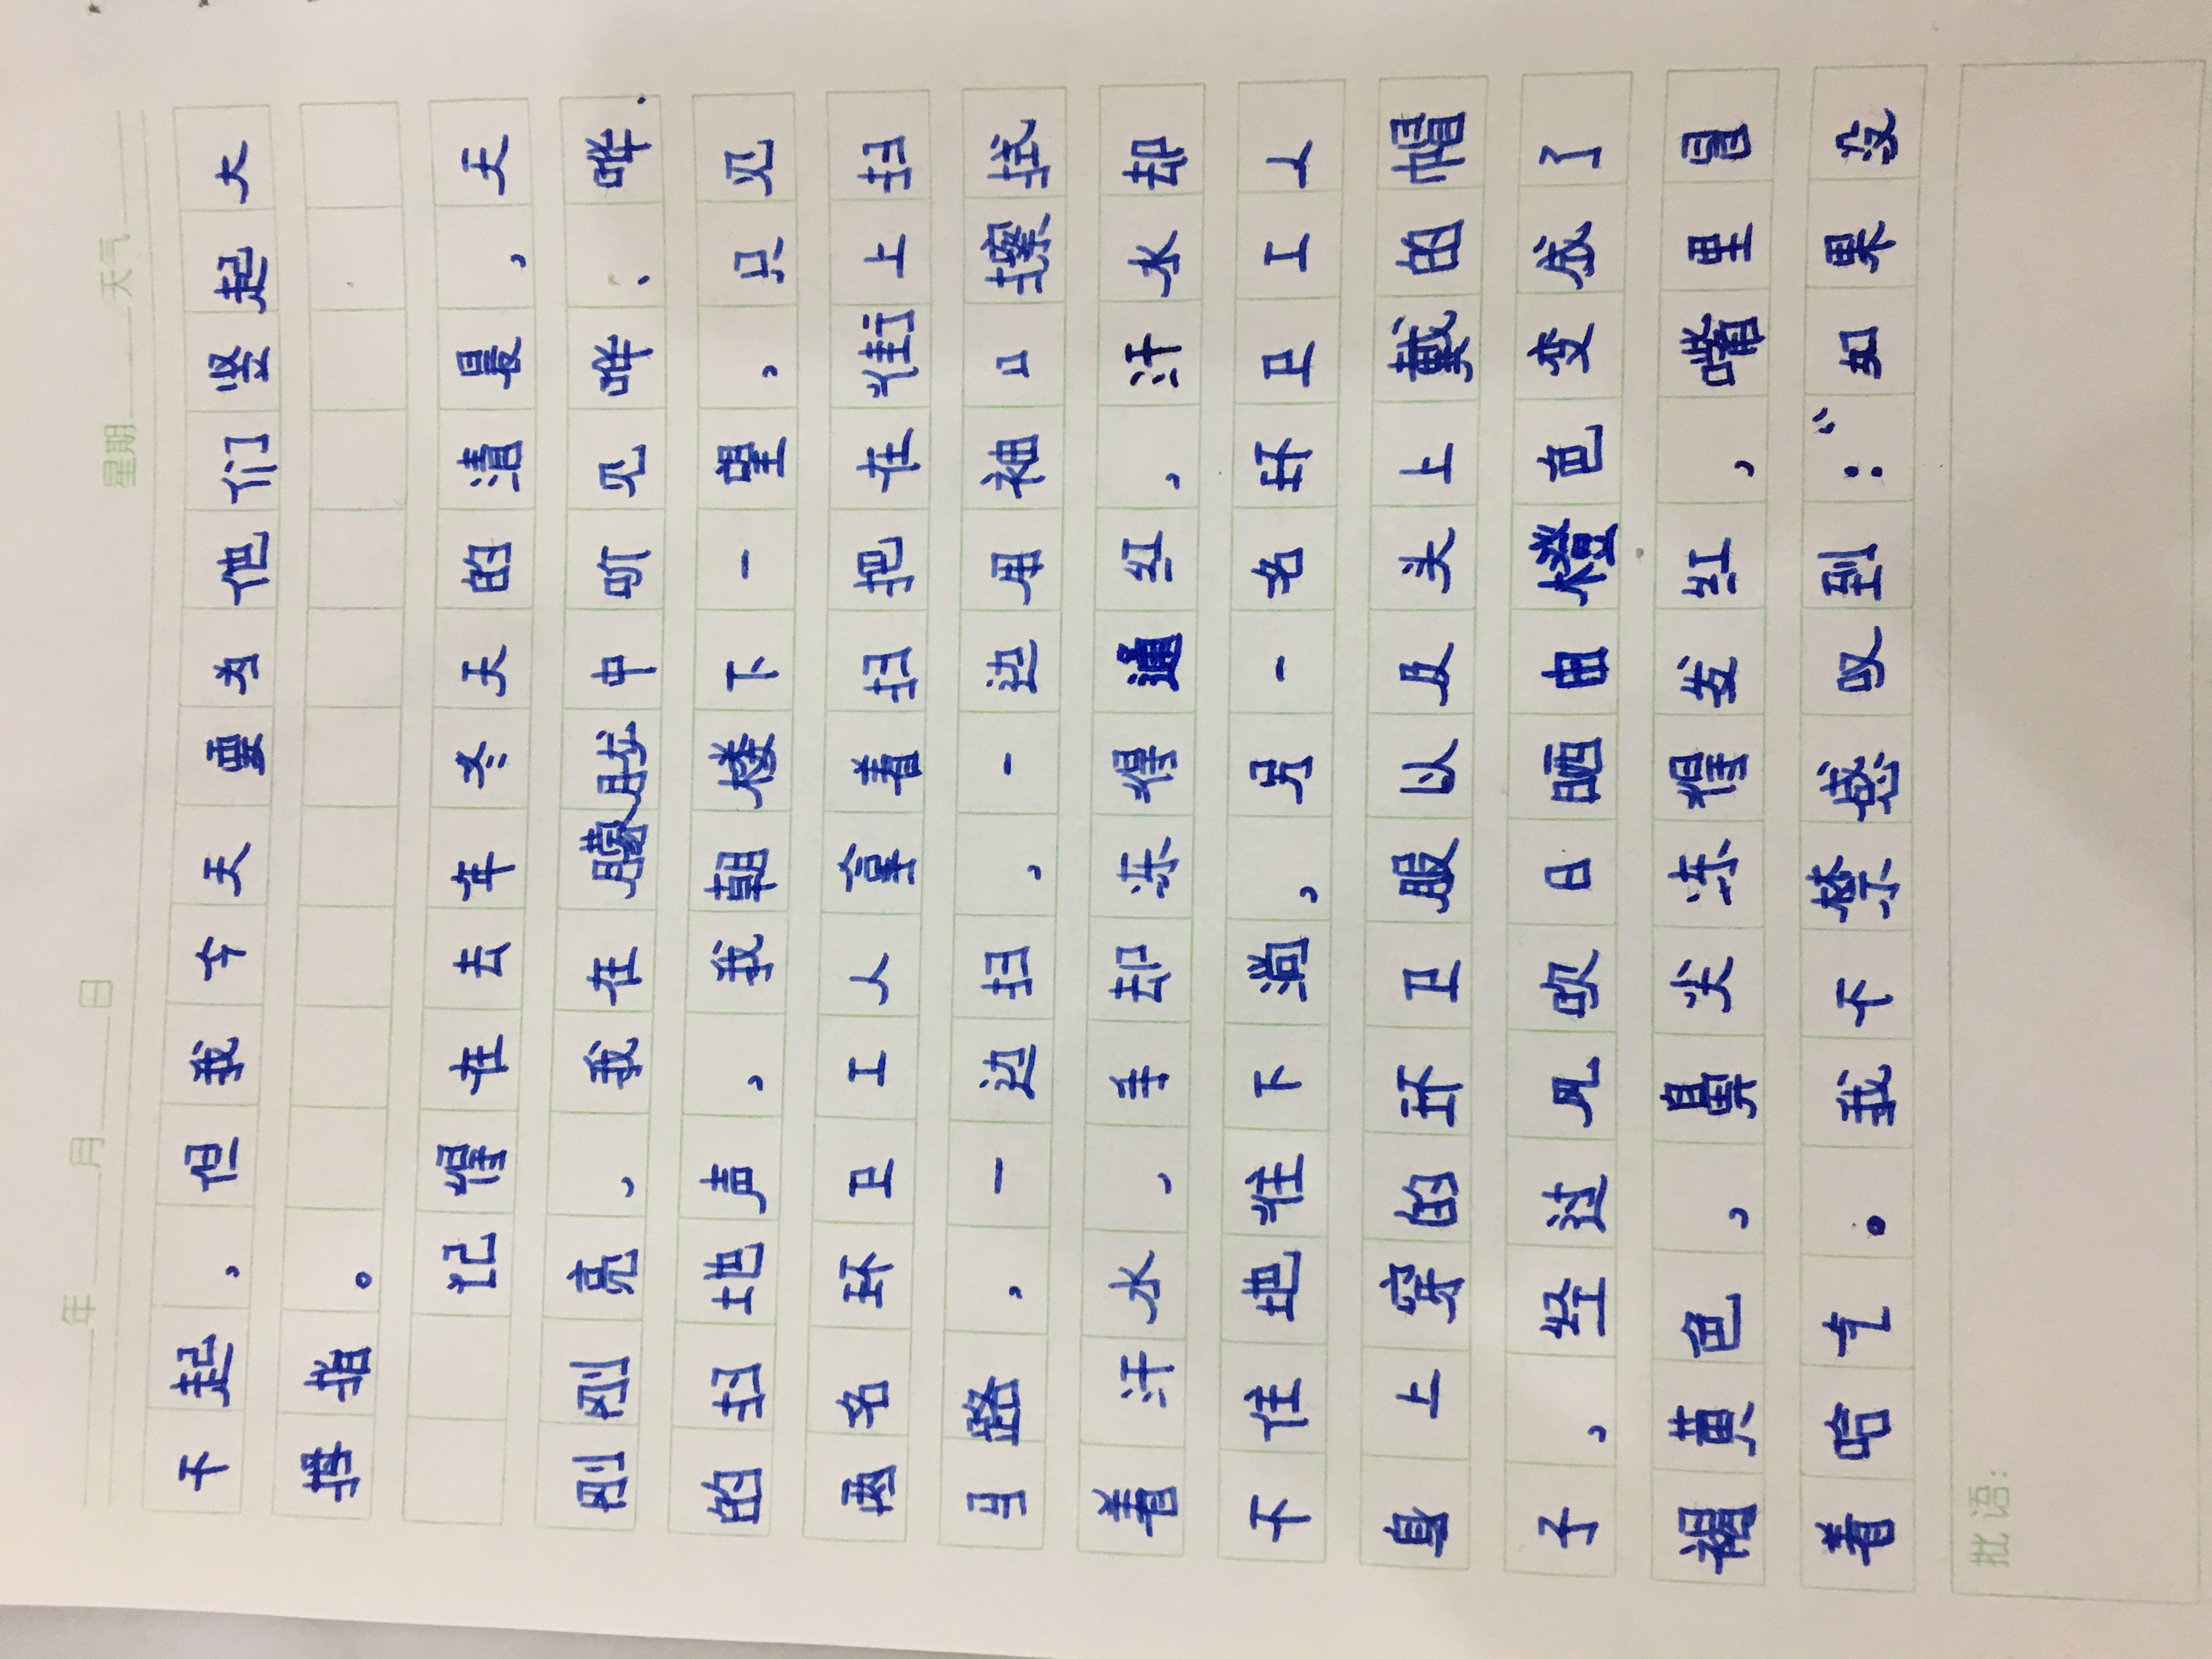 年 月 日 星期 天气
不起，但我今天要为他们竖起大
拇指。
记得在去年冬天的清晨，天
刚刚亮，我在朦胧中听见哗、哗、
的扫地声，我朝楼下一望，只见
两名环卫工人拿着扫把在街上扫
马路，一边扫，一边用袖口擦拭
着汗水，手却冻得通红，汗水却
不住地往下淌，另一名环卫工人
身上穿的环卫服以及头上戴的帽
子，经过风吹日晒由橙色变成了
褐黄色，鼻尖冻得发红，嘴里冒
着哈气。我不禁感叹到：“如果没
批语：